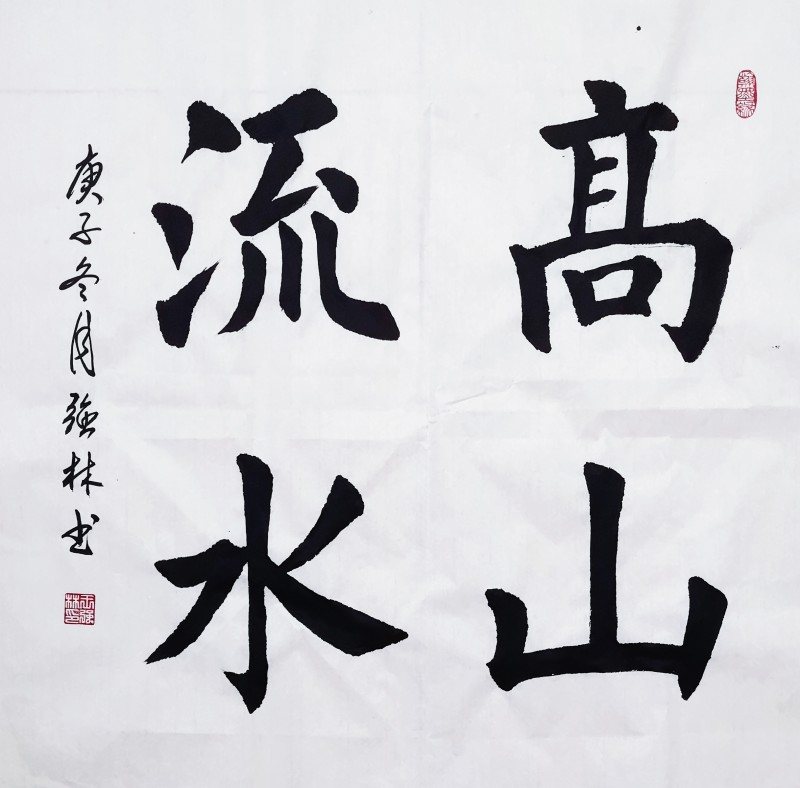 髙山
流水
庚子冬月強林书